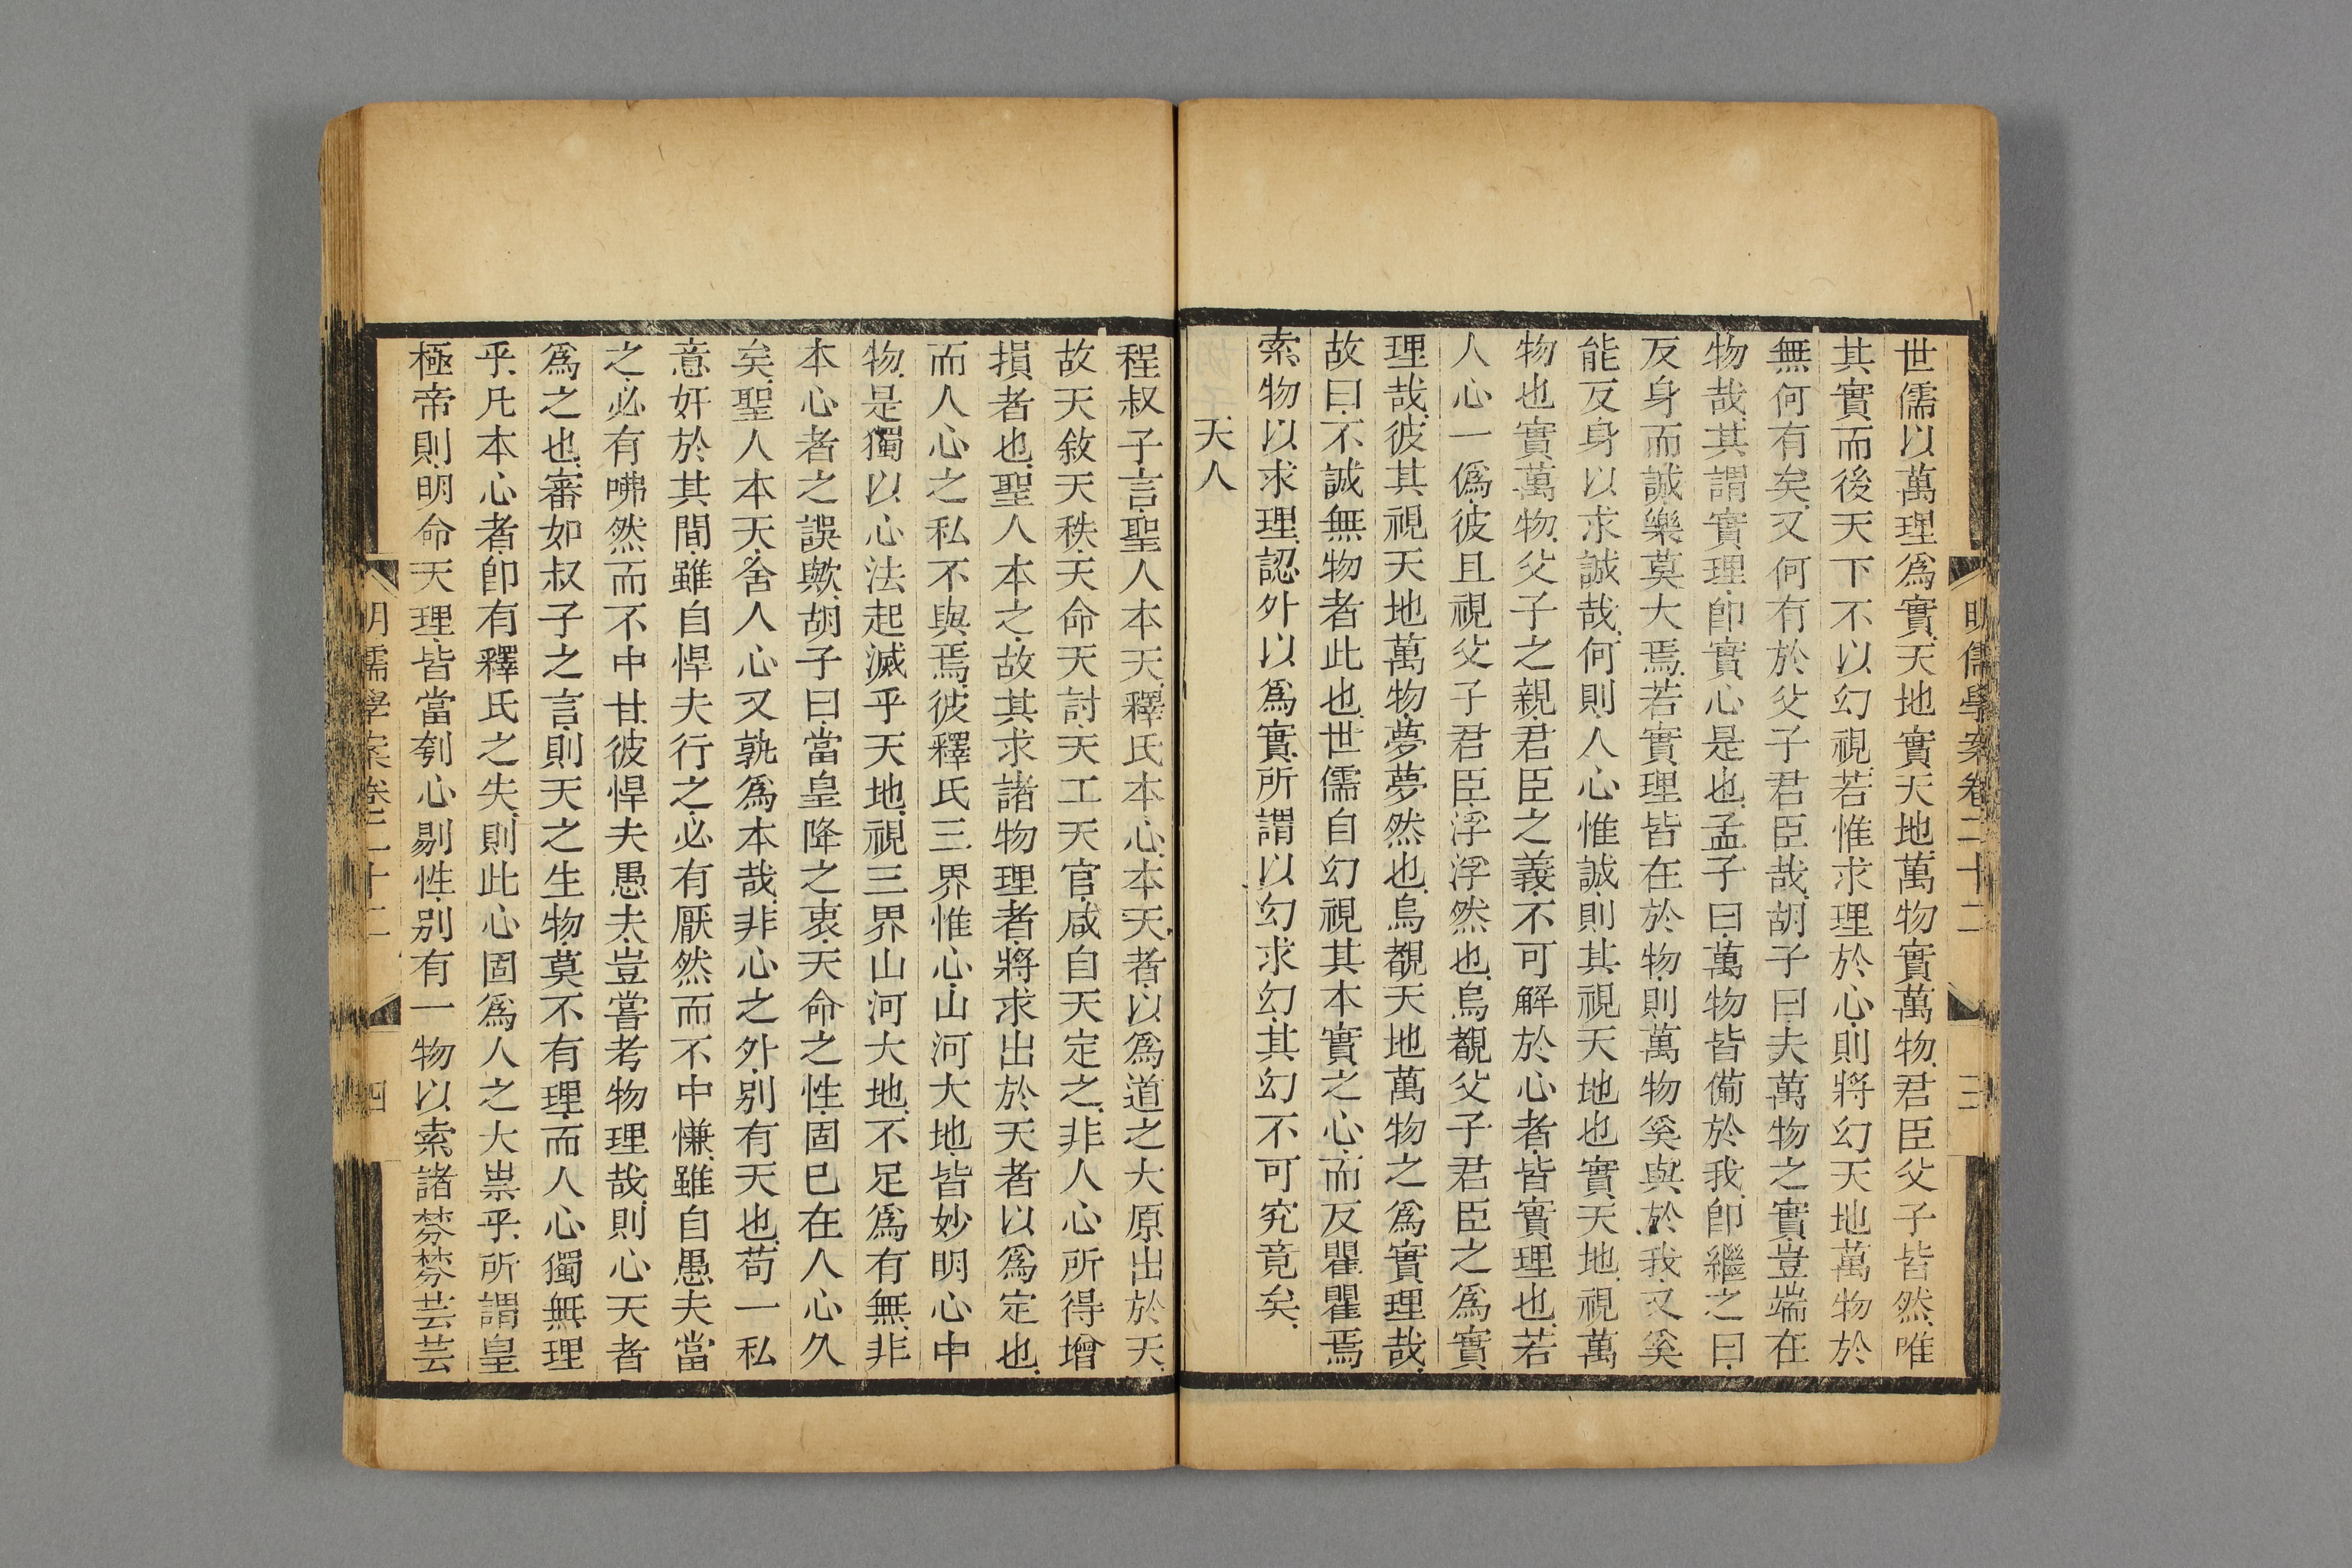 明儒學案卷二十二 三
世儒以萬理爲實.天地實天地.萬物實萬物.君臣父子皆然.唯
其實.而後天下不以幻視.若惟求理於心.則將幻天地萬物於
無何有矣.又何有於父子君臣哉.胡子曰.夫萬物之實.豈端在
物哉.其謂實理.卽實心是也.孟子曰.萬物皆備於我.卽繼之曰.
反身而誠.樂莫大焉.若實理皆在於物.則萬物奚與於我.又奚
能反身以求誠哉.何則.人心惟誠.則其視天地也實天地.視萬
物也實萬物.父子之親.君臣之義.不可解於心者.皆實理也.若
人心一僞.彼且視父子君臣.浮浮然也.烏覩父子君臣之爲實
理哉.彼其視天地萬物.夢夢然也.烏覩天地萬物之爲實理哉.
故曰.不誠無物者此也.世儒自幻視其本實之心.而反瞿瞿焉
索物以求理.認外以爲實.所謂以幻求幻.其幻不可究竟矣.
天人
程叔子言.聖人本天.釋氏本心.本天者.以爲道之大原出於天.
故天敘天秩.天命天討.天工天官.咸自天定之.非人心所得增
損者也.聖人本之.故其求諸物理者.將求出於天者以爲定也.
而人心之私不與焉.彼釋氏三界惟心.山河大地.皆妙明心中
物.是獨以心法起滅乎天地.視三界山河大地.不足爲有無.非
本心者之誤歟.胡子曰.當皇降之衷.天命之性.固已在人心久
矣.聖人本天.舍人心又孰爲本哉.非心之外.別有天也.苟一私
意奸於其間.雖自悍夫行之.必有厭然而不中慊.雖自愚夫當
之.必有咈然而不中甘.彼悍夫愚夫.豈嘗考物理哉.則心天者
爲之也.審如叔子之言.則天之生物.莫不有理.而人心獨無理
乎.凡本心者.卽有釋氏之失.則此心固爲人之大祟乎.所謂皇
極帝則.明命天理.皆當刳心剔性.別有一物以索諸棼棼芸芸
明儒學案卷二十二 四